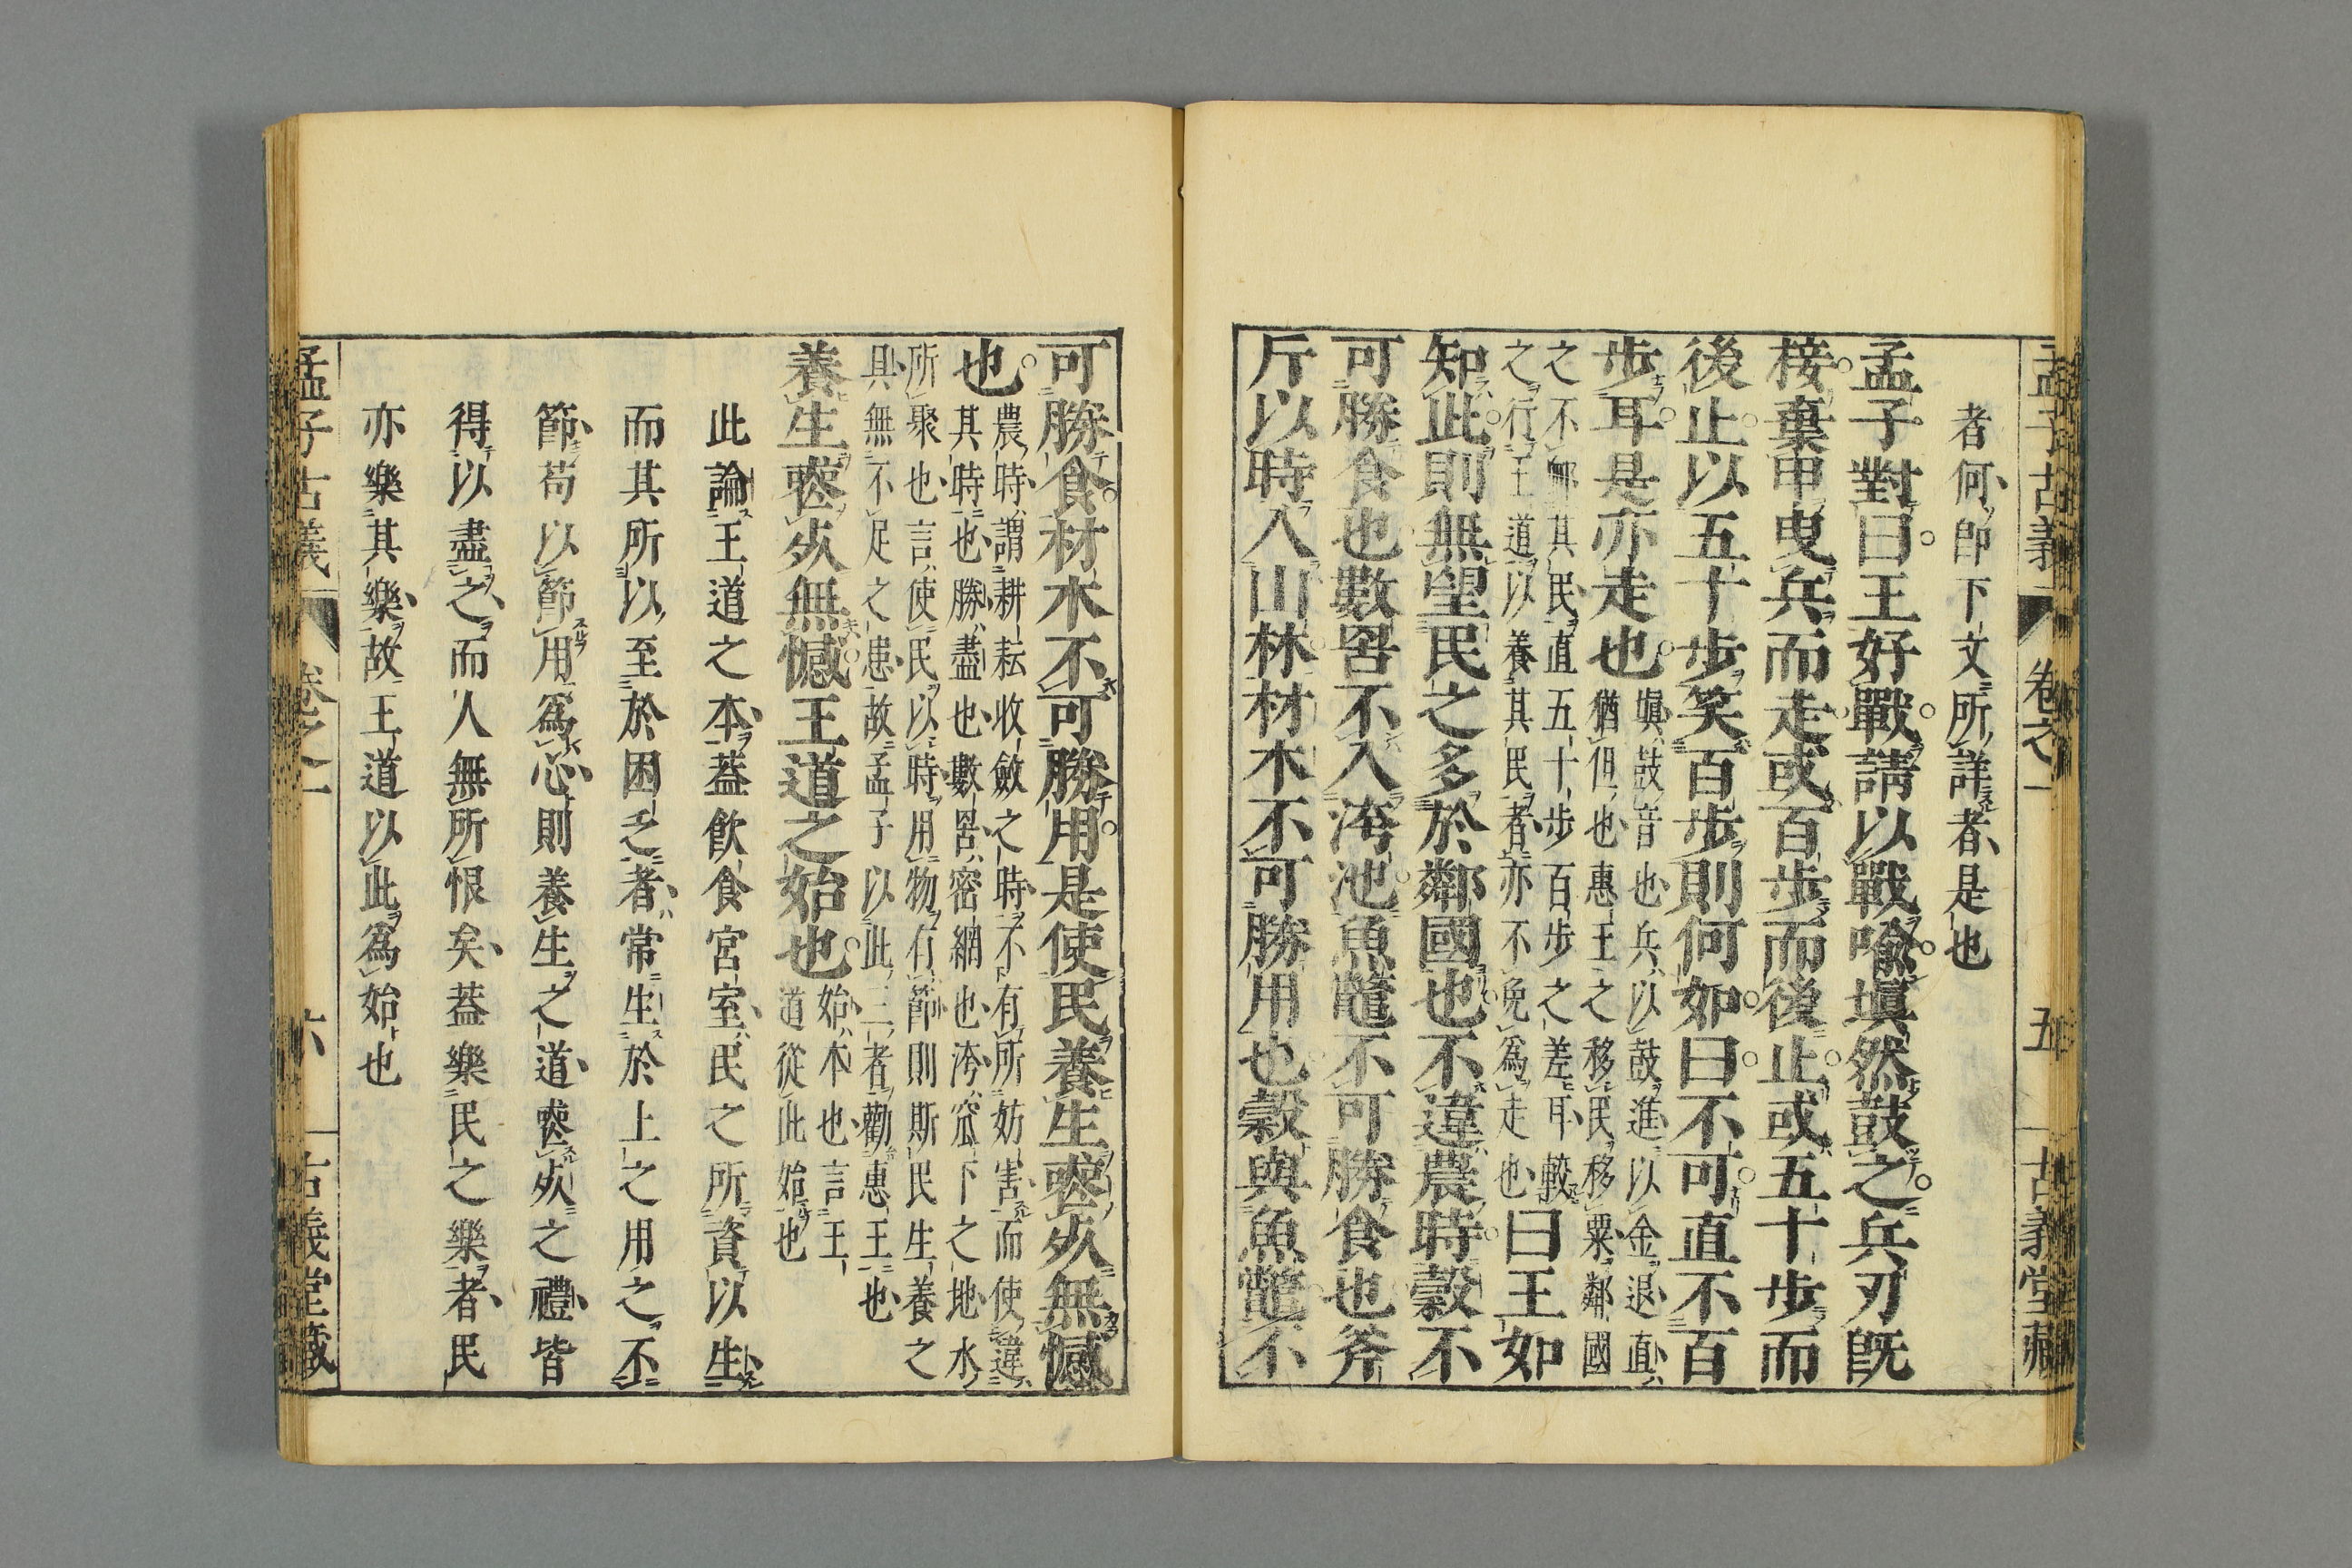 孟子古義 卷之一 五 古義堂藏
者何卽下文所詳者是也
孟子對曰王好戰請以戰喩塡然鼓之兵刃旣
接棄甲曳兵而走或百步而後止或五十步而
後止以五十步笑百步則何如曰不可直不百
步耳是亦走也
塡鼓音也兵以鼓進以金退直
猶但也惠王之移民移粟鄰國
之不䘏其民直五十步百步之差耳較
之行王道以養其民者亦不免爲走也
曰王如
知此則無望民之多於鄰國也不違農時穀不
可勝食也數罟不入洿池魚鼈不可勝食也斧
斤以時入山林材木不可勝用也穀與魚鼈不
可勝食材木不可勝用是使民養生喪死無憾
也
農時謂耕耘收斂之時不有所妨害而使違
其時也勝盡也數罟密網也洿窊下之地水
所聚也言使民以時用物有節則斯民生養之
具無不足之患故孟子以此三者勸惠王也
養生喪死無憾王道之始也
始本也言王
道從此始也
此論王道之本蓋飮食宮室民之所資以生
而其所以至於困乏者常生於上之用之不
節苟以節用爲心則養生之道喪死之禮皆
得以盡之而人無所恨矣蓋樂民之樂者民
亦樂其樂故王道以此爲始也
孟子古義 卷之一 六 古義堂藏